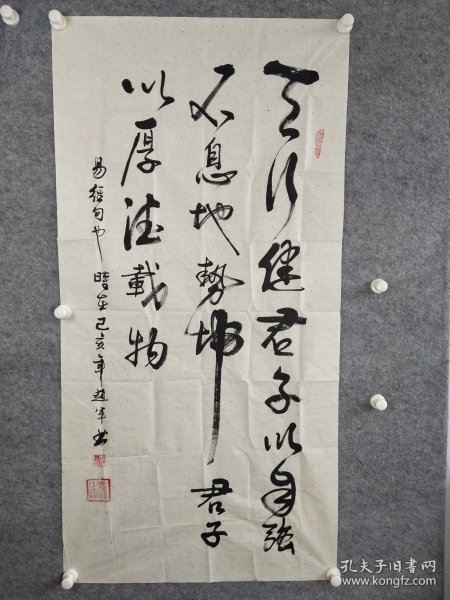 天行健君子以自强
不息地势坤君子
以厚德载物
易经句也 時在己亥年 书
孔夫子旧书网
www.kongfz.com